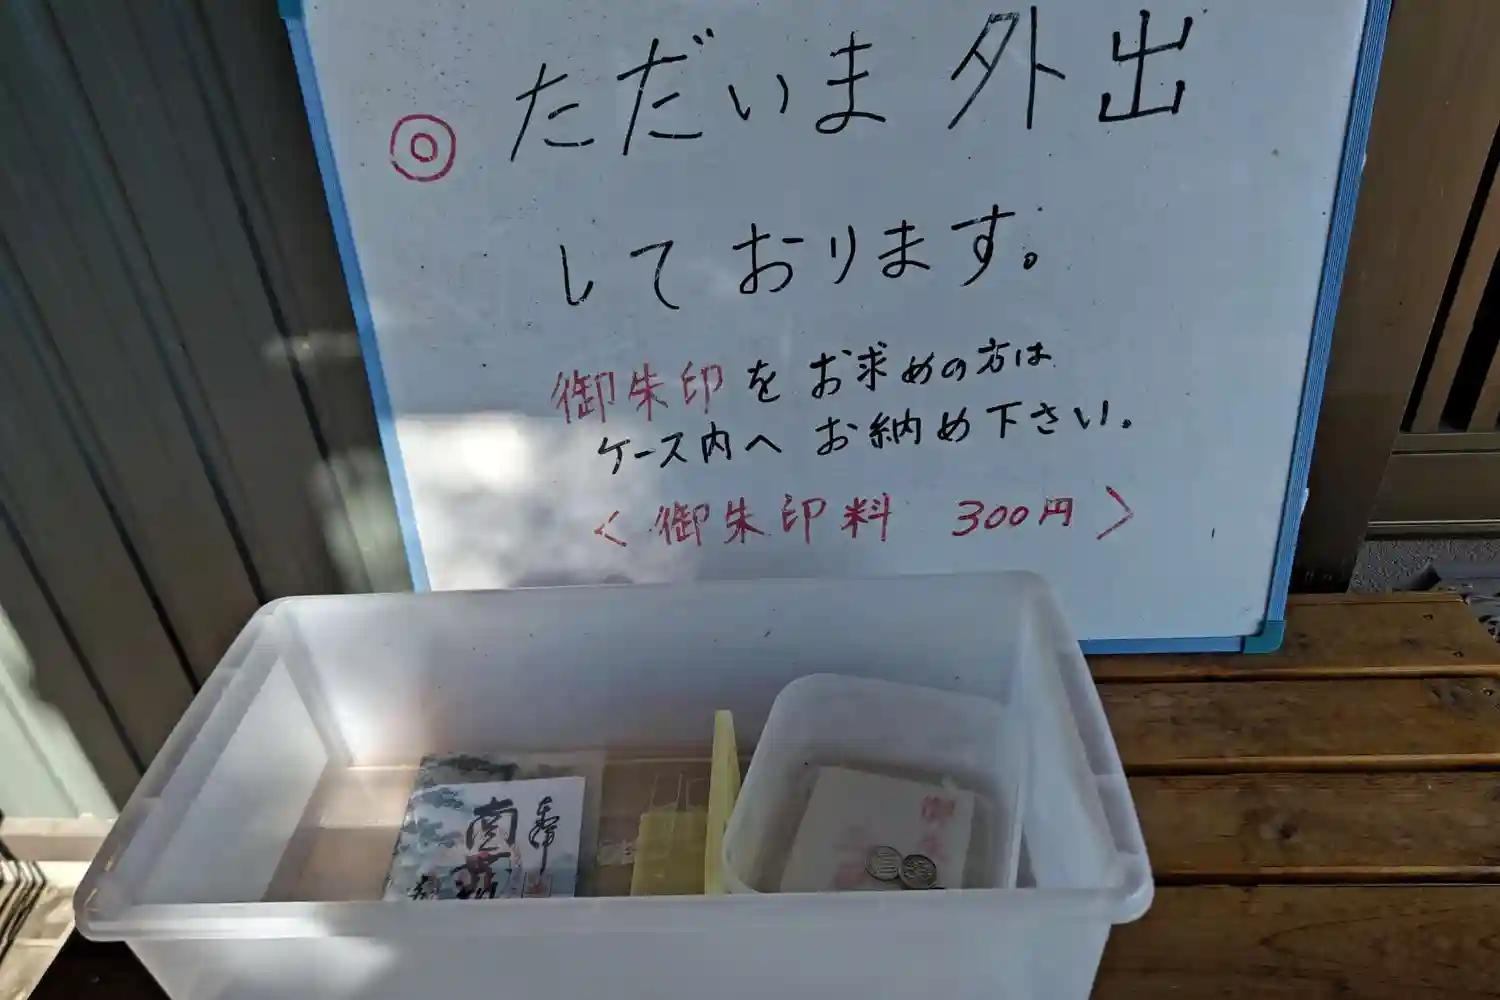 ◎ ただいま 外出
しております。
御朱印をお求めの方は
ケース内へ お納め下さい。
<御朱印料 300円>
奉拝